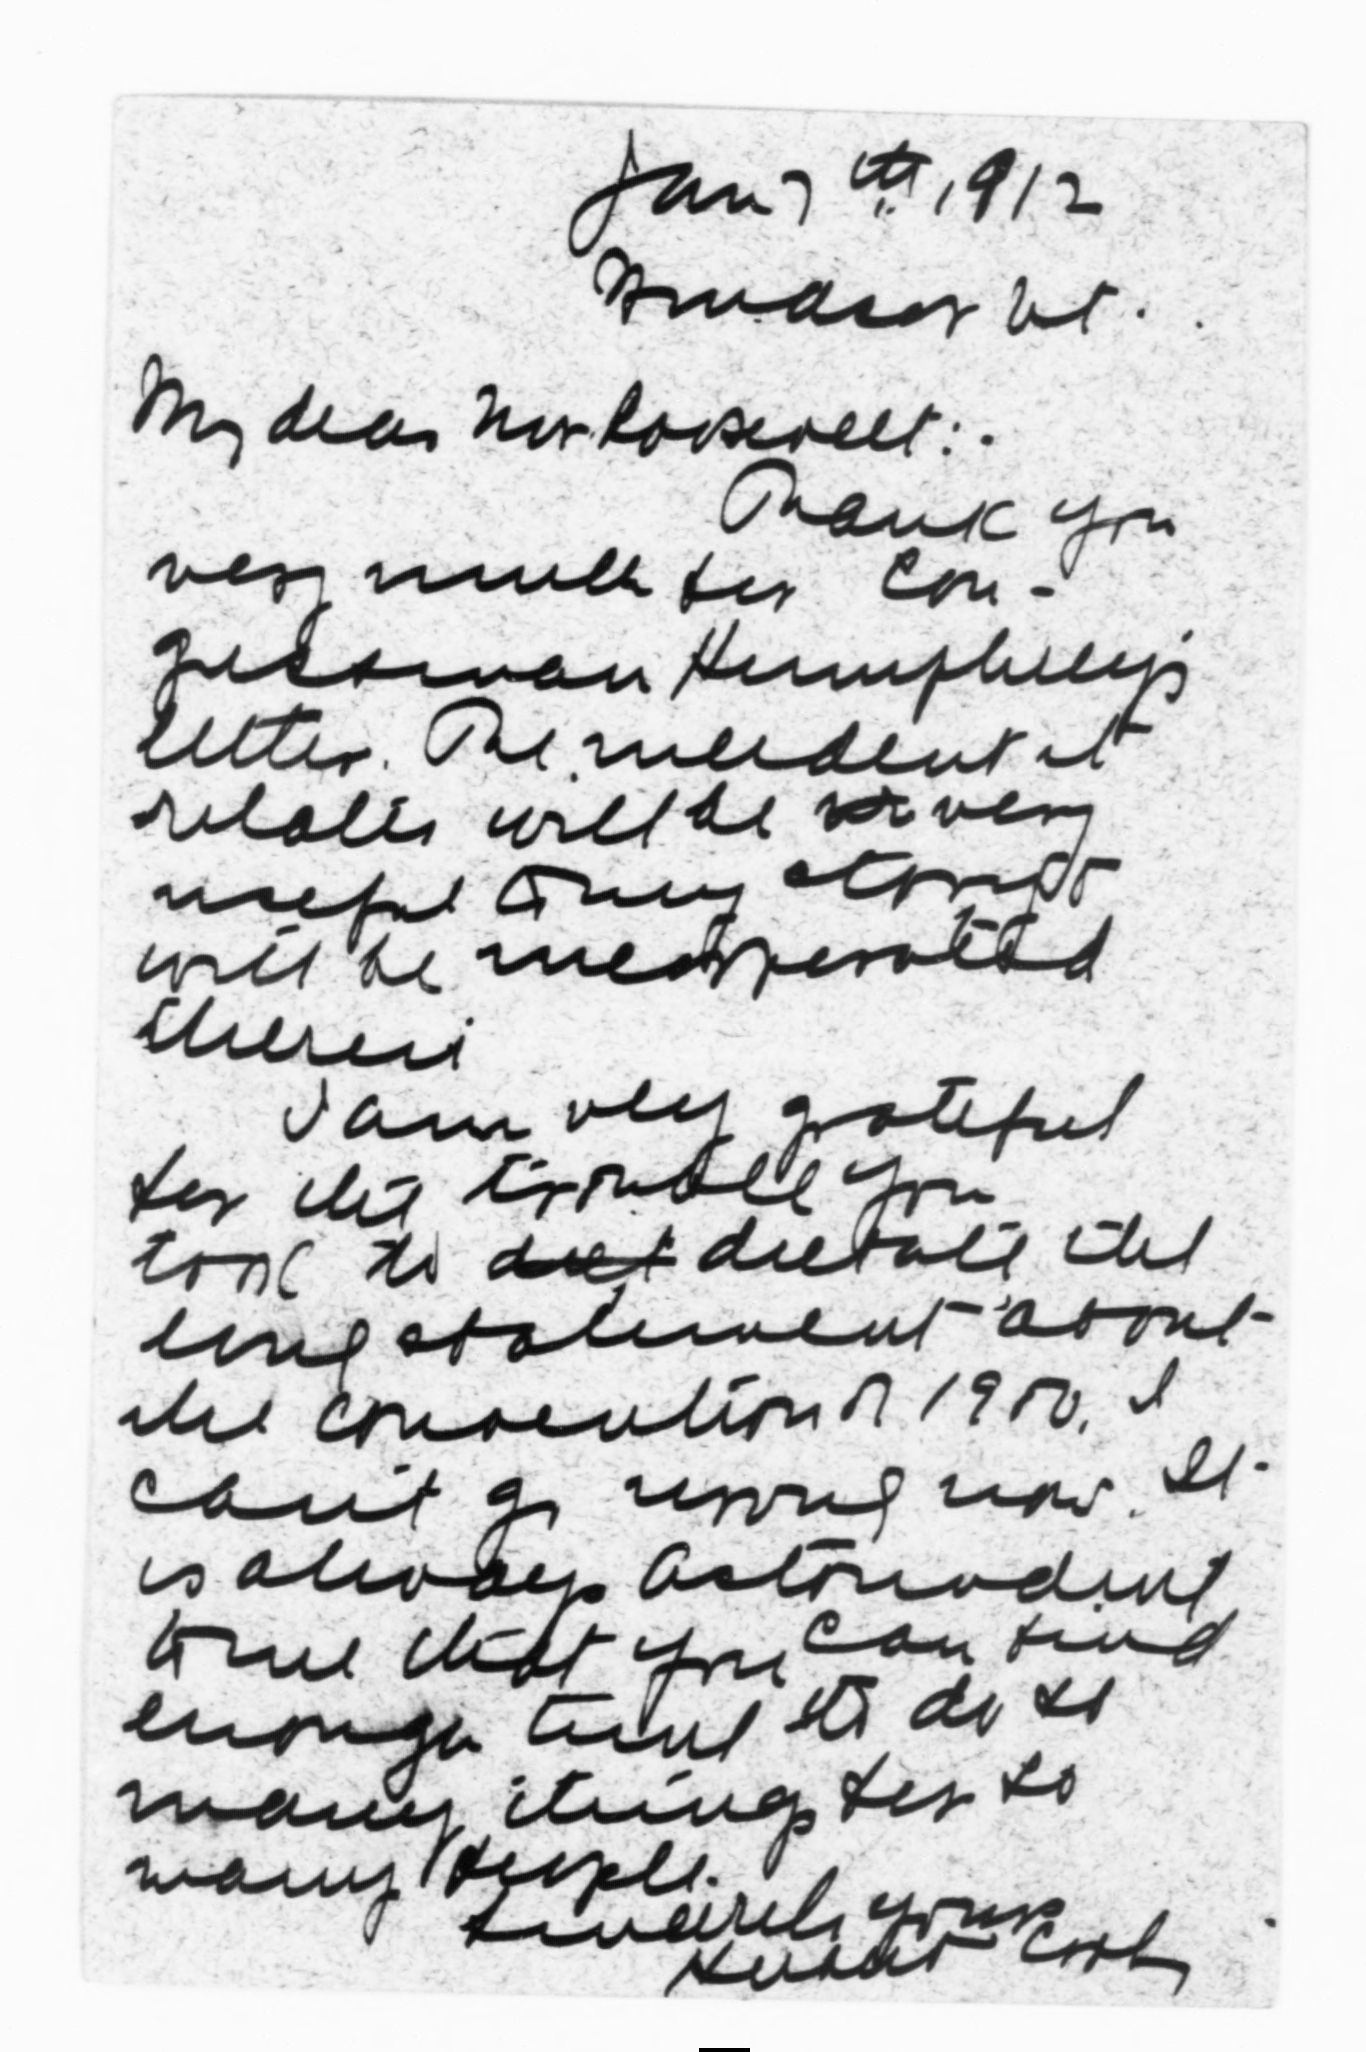 Jan 7th, 1912
Windsor Vt.
My dear Mr. Roosevelt:.
Thank you
very much for Con-
gressman Humphrey's
letter. The incident it
relates will be very
useful to my story &
will be incorporated
therein
I am very grateful
for the trouble you
took to dict dictate the
long statement about
the convention of 1900. I
can't go wrong now. It
is always astounding
to me that you can find
enough time to do so
many things for so
many people.
Sincerely yours